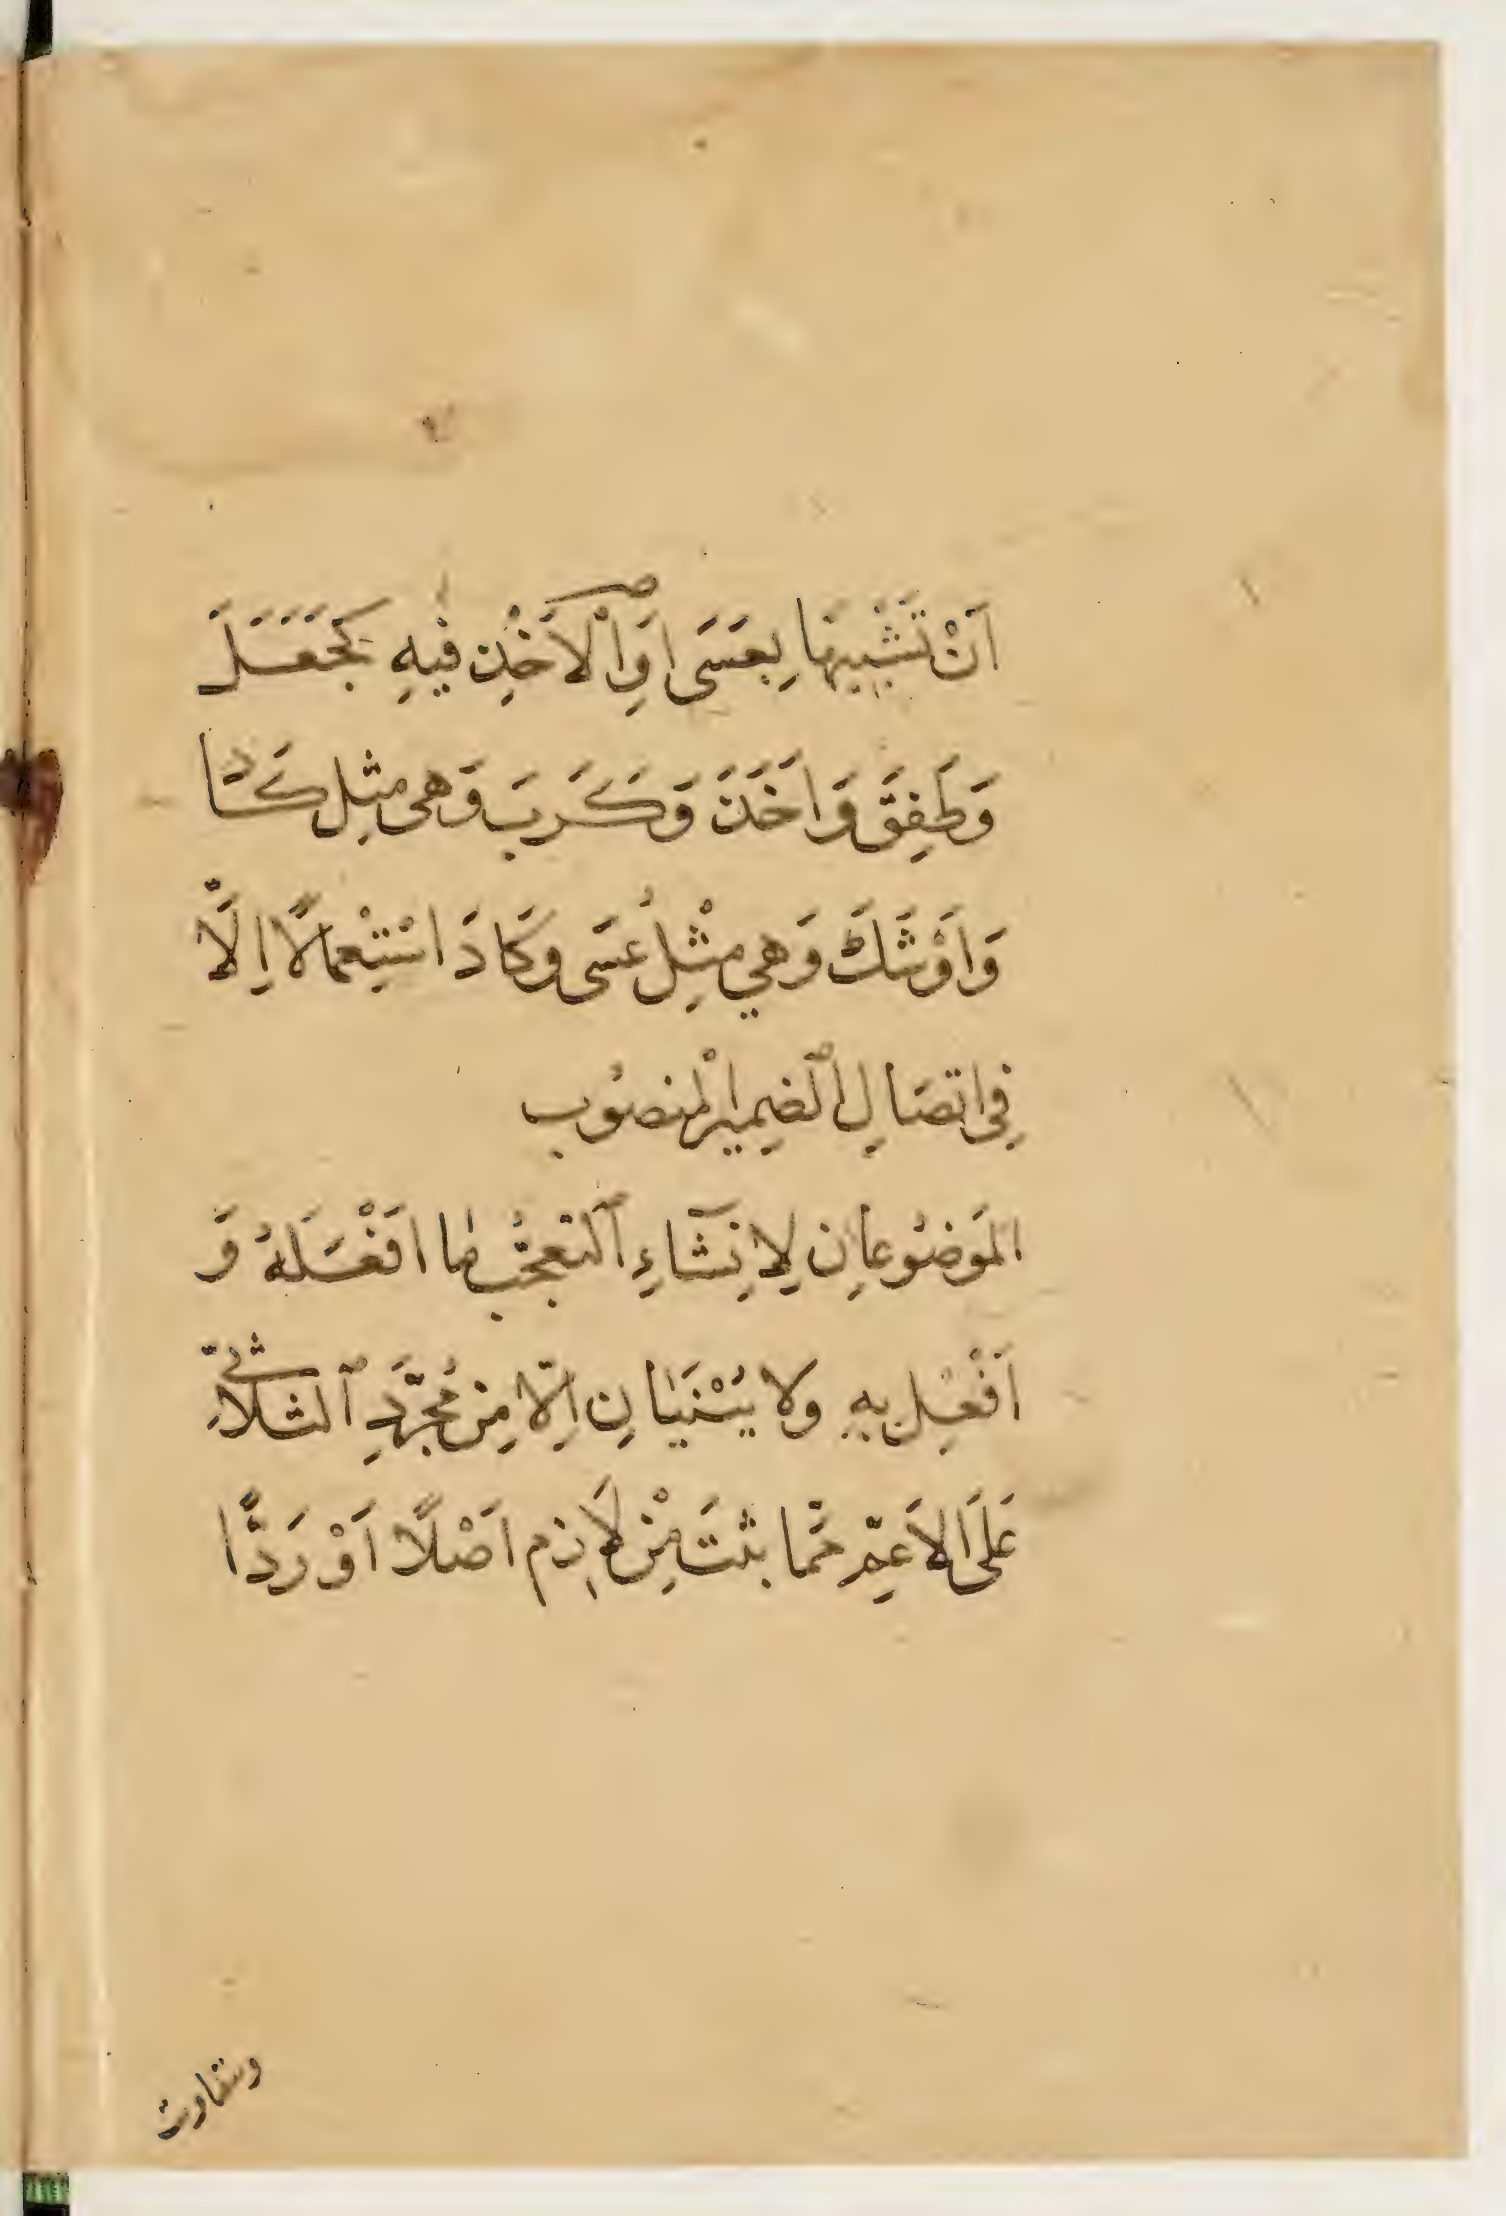 اَنْ تَشْبِيهَا بِعَسَى اَوِ ٱلْاَخْذِ فِيهِ كَجَعَلَ
وَطَفِقَ وَاَخَذَ وَكَرَبَ وَهِى مثِل كَادَ
وَاَوْشَكَ وَهِي مِثْلُ عَسَى وَكَادَ اسْتِعْمالاً اِلَّا
فِى اتصَالِ الضمِيرِ الْمنصُوبِ
المَوضُوعانِ لِاِنِشَاءِ ٱلتعجُّبِ ما اَفْعَلَهُ وَ
اَفْعِل بِهِ ولا يُبْنَيَانِ اِلّا مِن مُجَرَّدِ ٱلثلاثى
عَلَى الاَعَمِّ مّما ثبتَ مِنْ لَازِم اَصْلًا اَوْ رَدًّا
وتفاوت